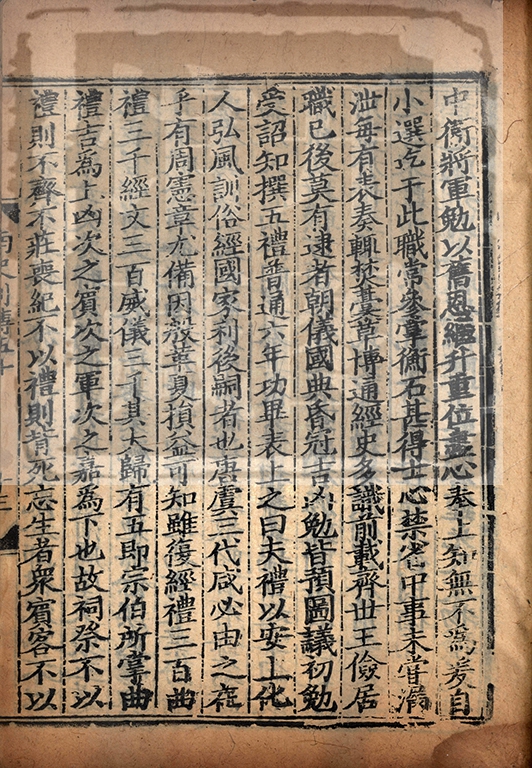 中衛將軍勉以舊恩繼升重位盡心奉上知無不為爰自
小選迄于此職常參掌衡石甚得士心禁省中事未嘗漏
泄每有表奏輒焚藁草博通經史多識前載齊世王儉居
職已後莫有逮者朝儀國典昏冠吉凶勉皆預圖議初勉
受詔知撰五禮普通六年功畢表上之曰夫禮以安上化
人弘風訓俗經國家利後嗣者也唐虞三代咸必由之在
乎有周憲章尤備因殷革夏損益可知雖復經禮三百曲
禮三千經文三百威儀三千其大歸有五即宗伯所掌曲
禮吉為上凶次之賓次之軍次之嘉為下也故祠祭不以
禮則不齊不莊喪紀不以禮則背死忘生者衆賓客不以
南史列傳五十